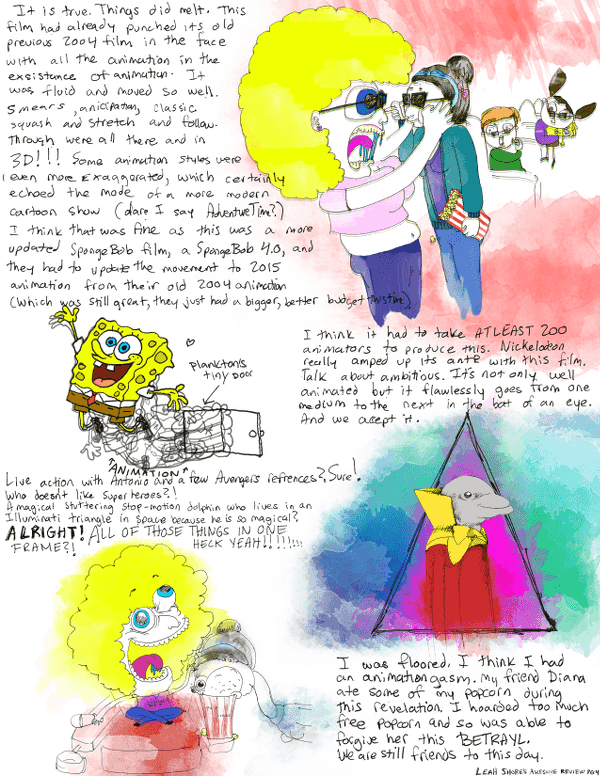 It is true. Things did melt. This
film had already punched its old
previous 2004 film in the face
with all the animation in the
exsistance of animation. It
was fluid and moved so well.
Smears, anticipation, classic
squash and stretch and follow-
through were all there and in
3D!!! Some animation styles were
even more exaggerated, which certainly
echoed the mode of a more modern
cartoon show (dare I say Adventure Time?)
I think that was fine as this was a more
updated SpongeBob film, a SpongeBob 4.0, and
they had to update the movement to 2015
animation from their old 2004 animation
(which was still great, they just had a bigger, better budget this time)
plankton's
tiny door
ANIMATION
I think it had to take ATLEAST 200
animators to produce this. Nickelodeon
really amped up its ante with this film.
Talk about ambitious. It's not only well
animated but it flawlessly goes from one
medium to the next in the bat of an eye.
And we accept it.
Live action with Antonio and a few Avengers refrences? Sure!
Who doesn't like Superheroes?!
A magical stuttering stop-motion dolphin who lives in an
Illuminati triangle in space because he is so magical?
ALRIGHT! ALL OF THOSE THINGS IN ONE
FRAME?! HECK YEAH!!!!!!!!
I was floored. I think I had
an animationgasm. My friend Diana
ate some of my popcorn during
this revelation. I hoarded too much
free popcorn and so was able to
forgive her this BETRAYL.
We are still friends to this day.
LEAH SHORE'S AWESOME REVIEW